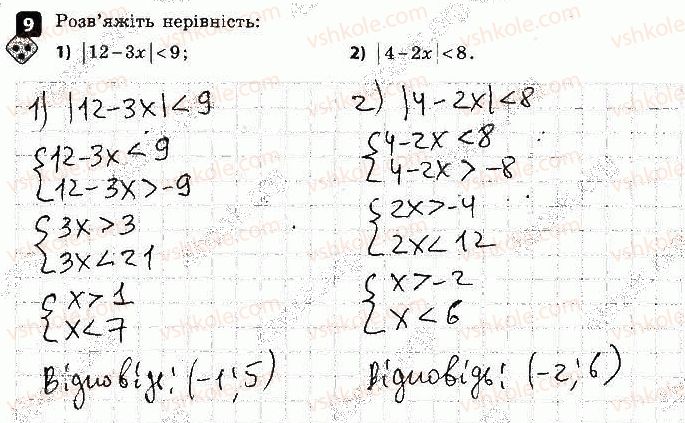 9 Розв'яжіть нерівність:
1) |12−3x|<9; 2) |4−2x|<8.
1) |12−3x|<9
{12−3x<9
{12−3x>−9
{3x>3
{3x<21
{x>1
{x<7
Відповідь: (−1; 5)
2) |4−2x|<8
{4−2x<8
{4−2x>−8
{2x>−4
{2x<12
{x>−2
{x<6
Відповідь: (−2; 6)
vshkole.com